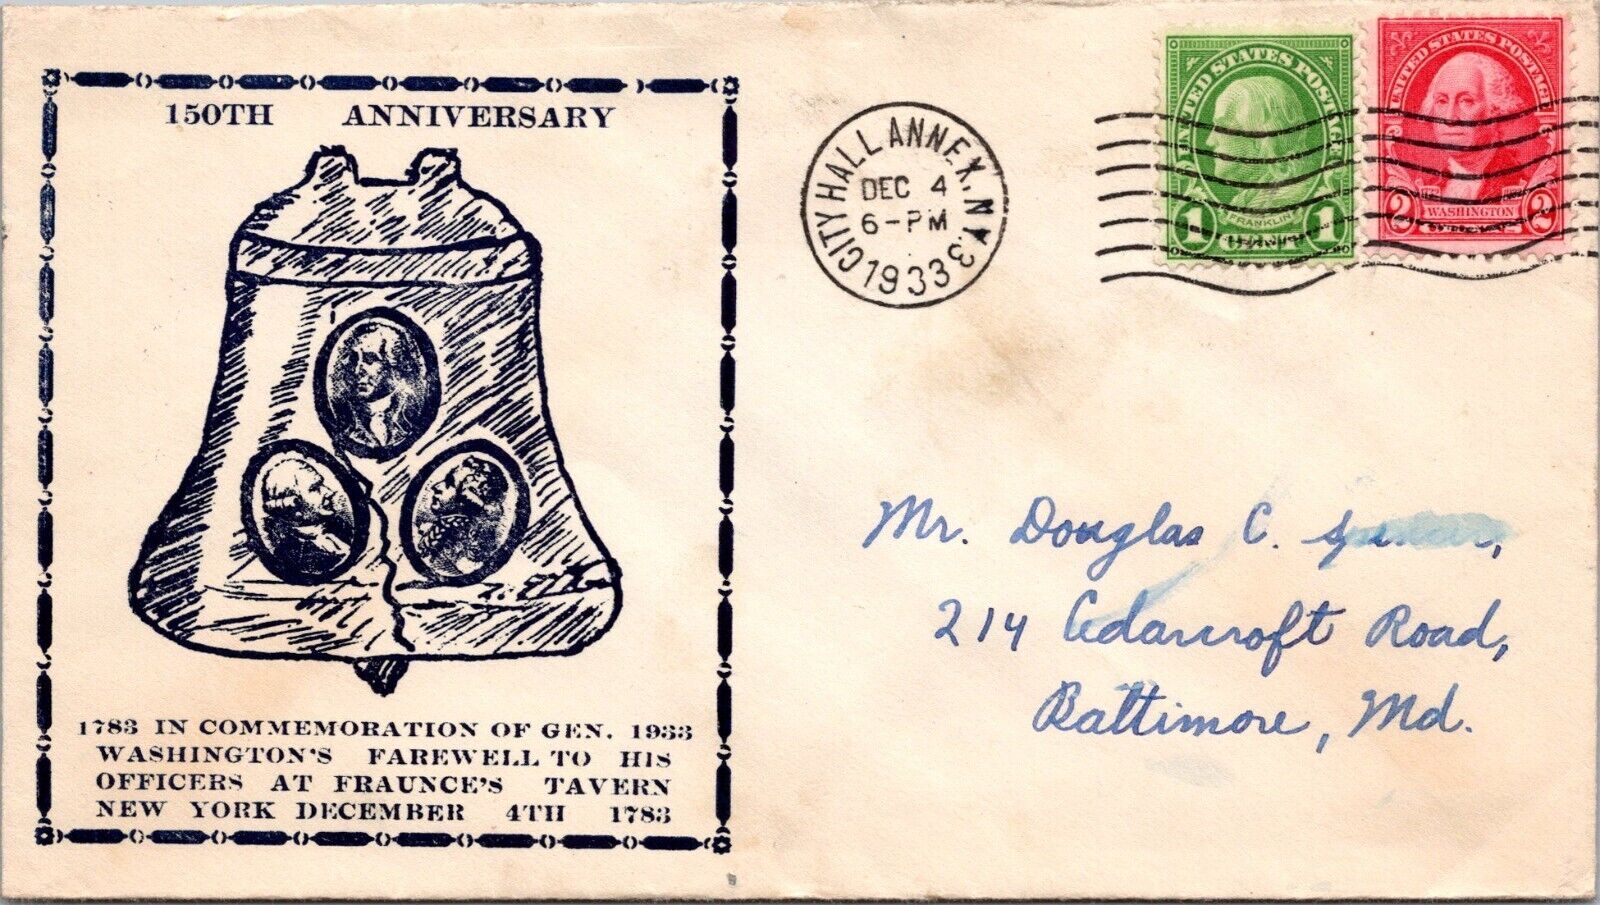 150TH ANNIVERSARY
1783 IN COMMEMORATION OF GEN. 1933
WASHINGTON'S FAREWELL TO HIS
OFFICERS AT FRAUNCE'S TAVERN
NEW YORK DECEMBER 4TH 1783
CITY HALL ANNEX, N.Y.
DEC 4
6-PM
1933
3
UNITED STATES POSTAGE
FRANKLIN
1 1
UNITED STATES POSTAGE
WASHINGTON
2 2
Mr. Douglas C.
214 Cedarcroft Road,
Baltimore, Md.